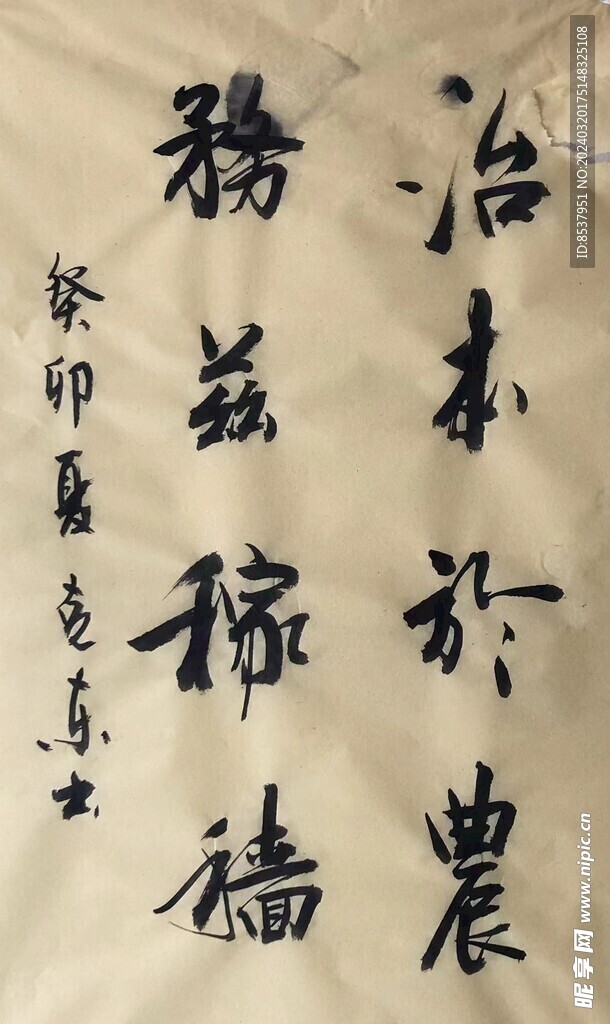 治本於農
務茲稼穡
癸卯夏克东书
ID:8537951 NO:20240320175148325108
昵享网 www.nipic.cn